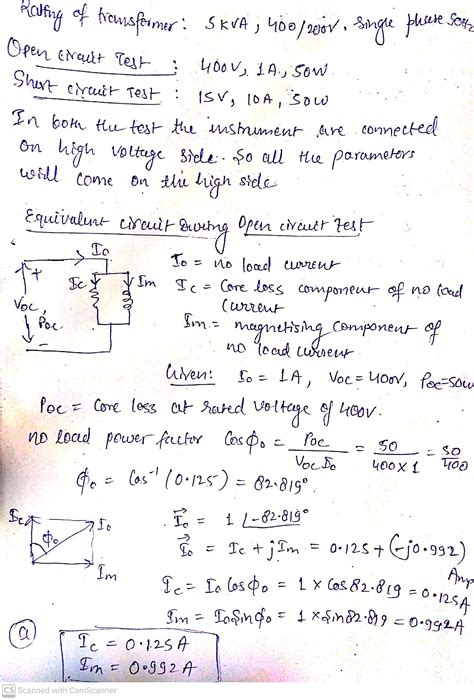 Rating of transformer: 5KVA, 400/200V, Single phase 50Hz
Open circuit Test : 400V, 1A, 50W
Short circuit Test : 15V, 10A, 50W
In both the test the instrument are connected
on high voltage side. So all the parameters
will come on the high side
Equivalent circuit During Open circuit Test
I₀
+
Voc,
Poc
-
Ic
Im
I₀ = no load current
Ic = Core loss component of no load
current
Im = magnetising component of
no load current
Given: I₀ = 1A, Voc = 400V, Poc=50W
Poc = Core loss at rated voltage of 400V.
no load power factor Cosϕ₀ = Poc / Voc I₀ = 50 / 400×1 = 50 / 400
ϕ₀ = Cos⁻¹ (0.125) = 82.819°
Ic
I₀
ϕ₀
Im
I₀ = 1 ∠-82.819°
I₀ = Ic + jIm = 0.125 + (-j0.992)
Amp
Ic = I₀ Cosϕ₀ = 1 × Cos 82.819 = 0.125A
Im = I₀Sinϕ₀ = 1 × Sin 82.819 = 0.992A
(a)
Ic = 0.125A
Im = 0.992A
CS Scanned with CamScanner